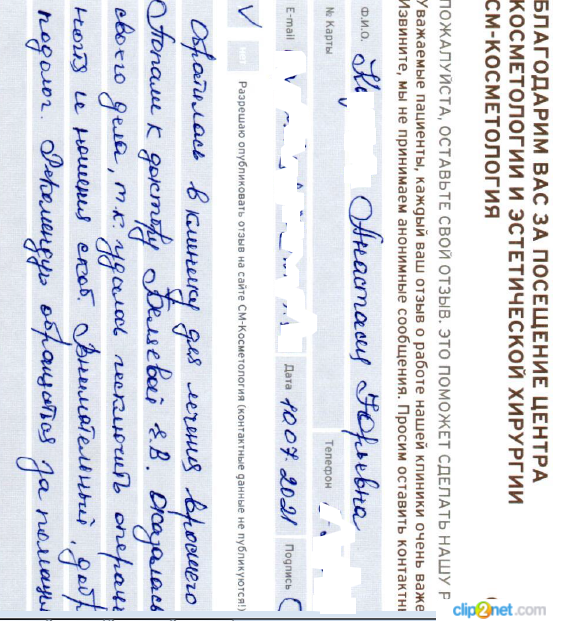 БЛАГОДАРИМ ВАС ЗА ПОСЕЩЕНИЕ ЦЕНТРА
КОСМЕТОЛОГИИ И ЭСТЕТИЧЕСКОЙ ХИРУРГИИ
СМ-КОСМЕТОЛОГИЯ
ПОЖАЛУЙСТА, ОСТАВЬТЕ СВОЙ ОТЗЫВ. ЭТО ПОМОЖЕТ СДЕЛАТЬ НАШУ Р
Уважаемые пациенты, каждый ваш отзыв о работе нашей клиники очень важе
Извините, мы не принимаем анонимные сообщения. Просим оставить контактн
Ф.И.О. Анастасия Юрьевна
№ Карты Телефон
E-mail Дата 10.07.2021 Подпись
V нет Разрешаю опубликовать отзыв на сайте СМ-Косметология (контактные данные не публикуются!)
Обратилась в клинику для лечения вросшего
Попали к доктору Беляевой Е.В. Оказалась
своего дела, т.к. удалось исключить операц
ногтя и ношения скоб. Внимательный, добр
подолог. Рекомендую обращаться за помощью
clip2net.com